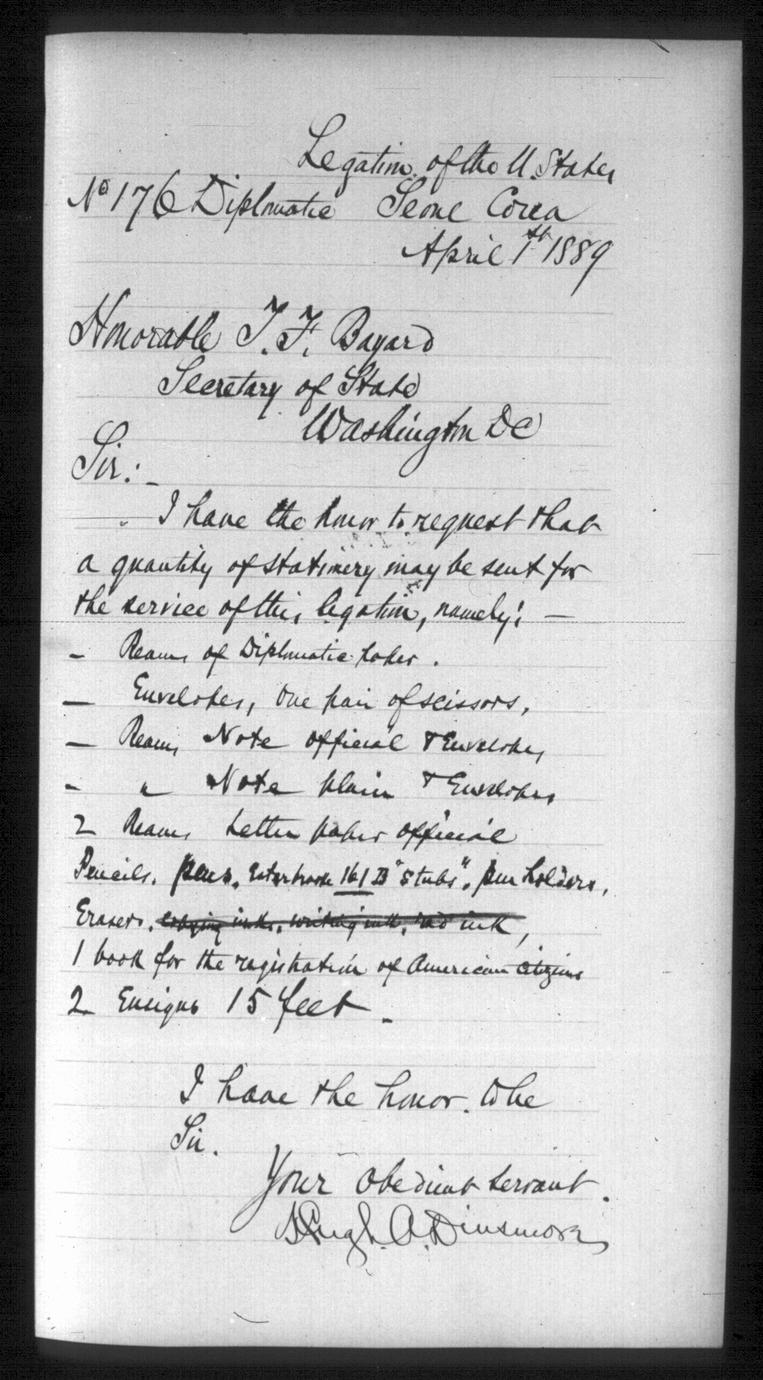 Legation of the U. States
No 176 Diplomatic Seoul Corea
April 1st 1889
Honorable T. F. Bayard
Secretary of State
Washington DC
Sir:-
I have the honor to request that
a quantity of stationery may be sent for
the service of this legation, namely: —
- Reams of Diplomatic paper.
— Envelopes, One pair of scissors,
— Reams Note official & Envelopes
- " Note plain & Envelopes
2 Reams Letter paper official
Pencils, pens, Esterbrook 161 B "Stubs", pen holders,
Erasers, copying inks, writing ink, red ink,
1 book for the registration of American citizens
2 Ensigns 15 feet -
I have the honor to be
Sir.
Your obedient servant.
Hugh. A. Dinsmore